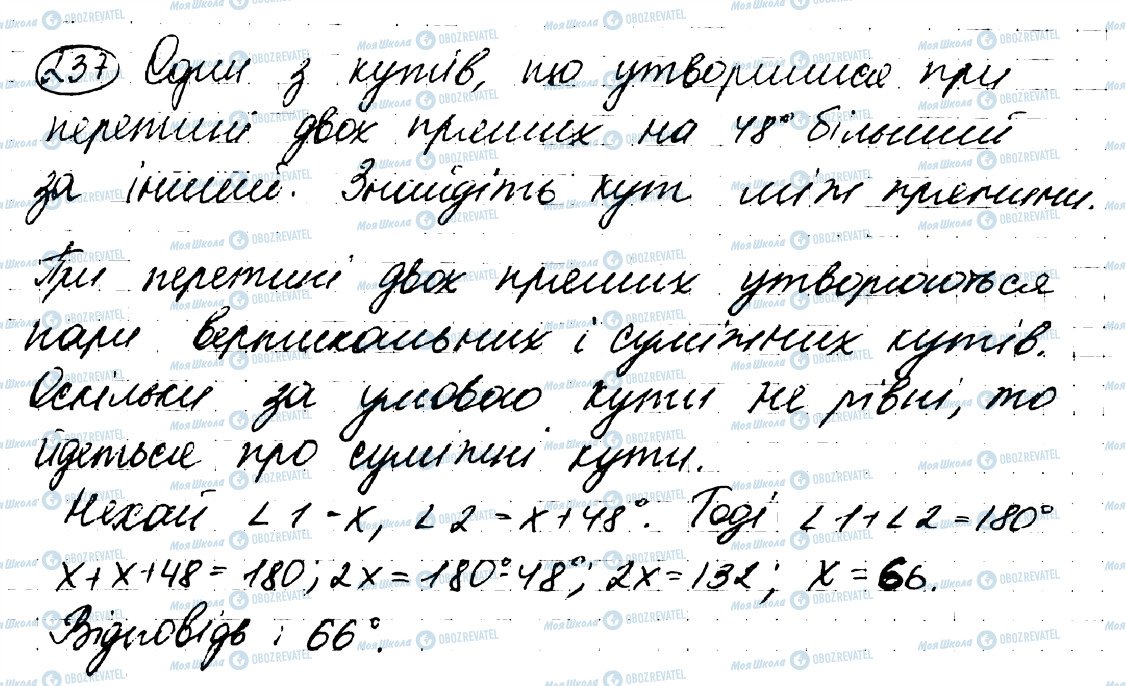 237 Один з кутів, що утворилися при
перетині двох прямих на 48° більший
за інший. Знайдіть кут між прямими.
При перетині двох прямих утворюються
пари вертикальних і суміжних кутів.
Оскільки за умовою кути не рівні, то
йдеться про суміжні кути.
Нехай ∠1 - x, ∠2 - x+48°. Тоді ∠1+∠2=180°
x+x+48=180; 2x=180°-48°; 2x=132; x=66.
Відповідь: 66°.